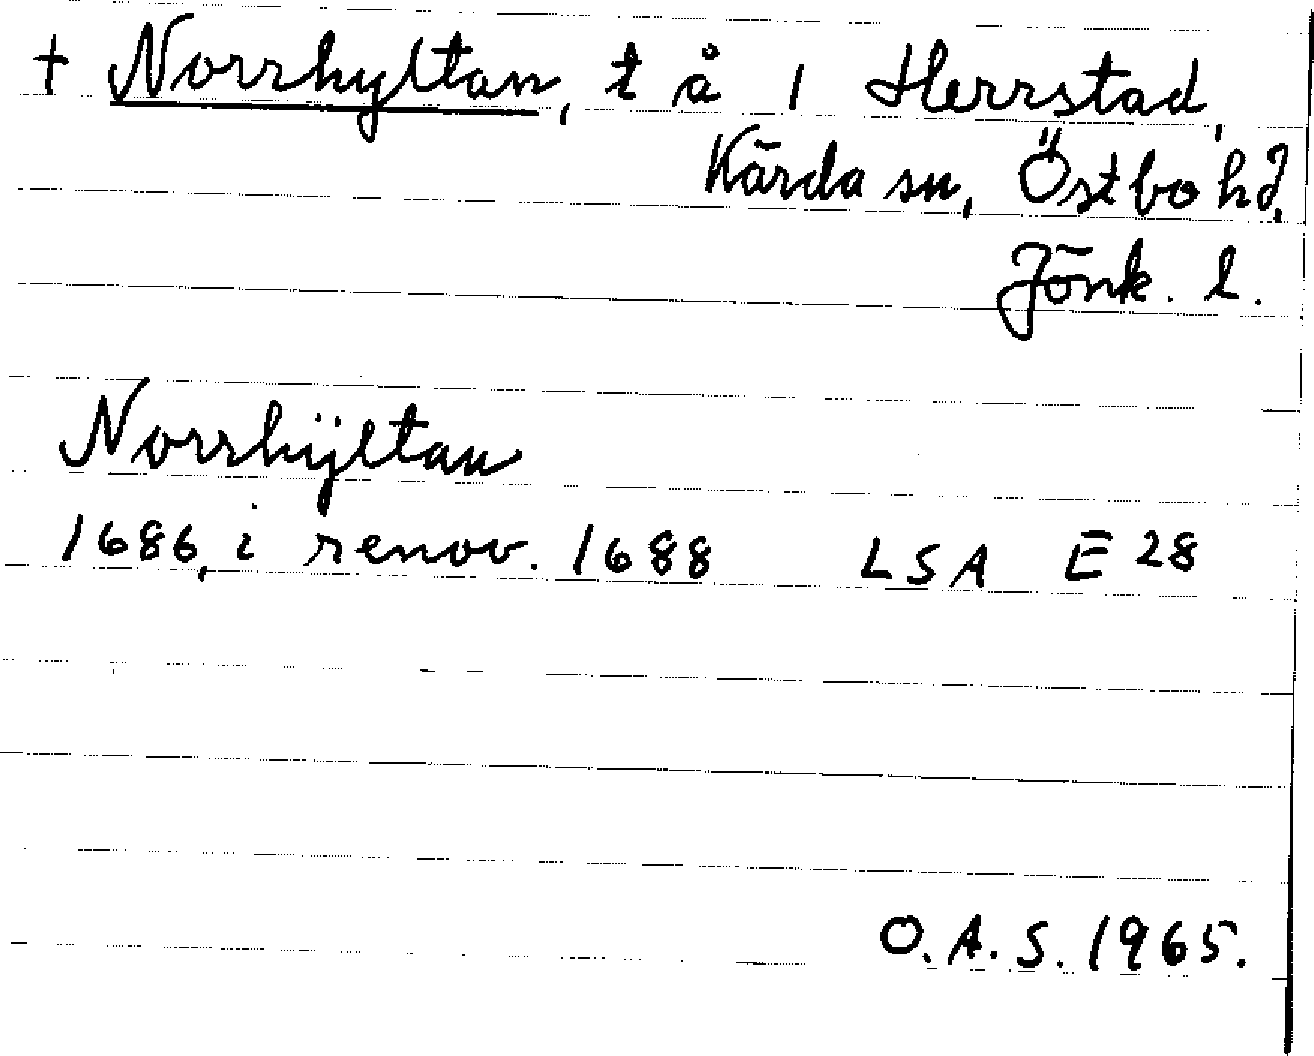 † Norrhyltan, t å 1 Herrstad,
Kärda sn, Östbo hd,
Jönk. l.
Norrhÿltan
1686, i renov. 1688 LSA E 28
O.A.S. 1965.